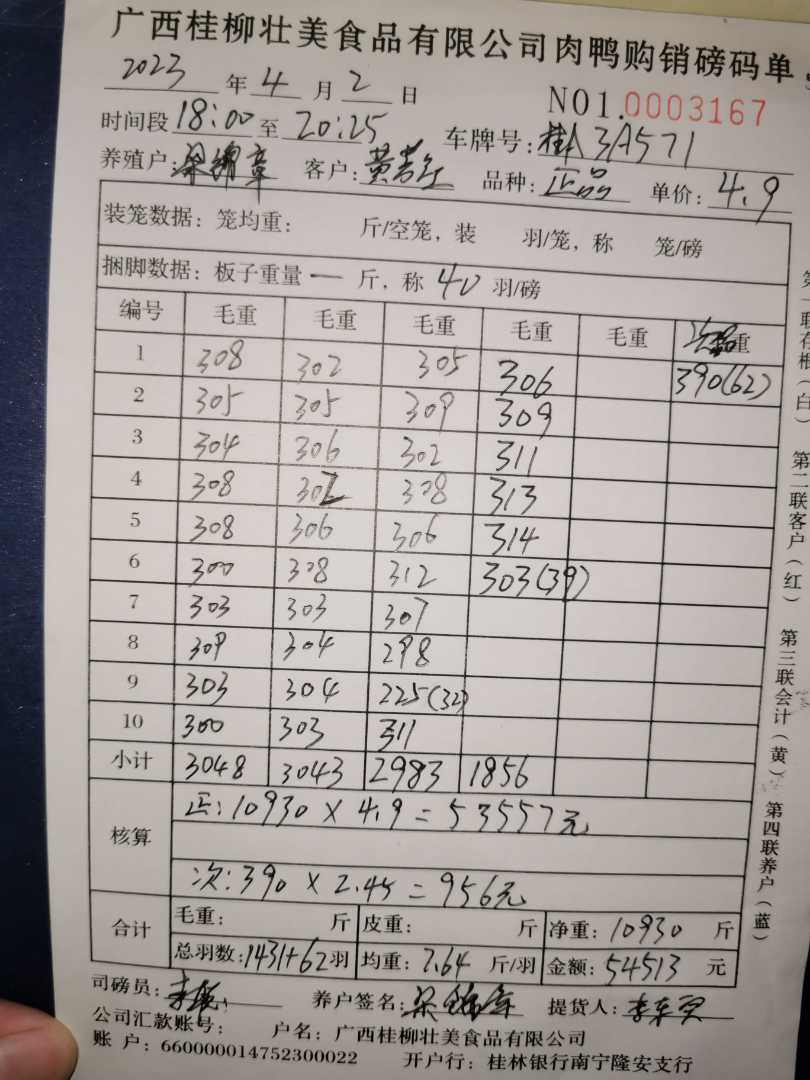 广西桂柳壮美食品有限公司肉鸭购销磅码单
2023 年 4 月 2 日 NO1.0003167
时间段 18:00 至 20:25 车牌号: 桂A3A571
养殖户: 梁锦章 客户: 品种: 正品 单价: 4.9
装笼数据: 笼均重: 斤/空笼, 装 羽/笼, 称 笼/磅
捆脚数据: 板子重量 一 斤, 称 40 羽/磅
编号 毛重 毛重 毛重 毛重 毛重 次品重
1 308 302 305 306 390(62)
2 305 305 309 309
3 304 306 302 311
4 308 302 308 313
5 308 306 306 314
6 300 308 312 303(39)
7 303 303 307
8 309 304 298
9 303 304 225(32)
10 300 303 311
小计 3048 3043 2983 1856
核算
正: 10930 × 4.9 = 53557元
次: 390 × 2.45 = 956元
合计
毛重: 斤 皮重: 斤 净重: 10930 斤
总羽数: 1431+62 羽 均重: 7.64 斤/羽 金额: 54513 元
司磅员: 养户签名: 梁锦章 提货人:
公司汇款账号: 户名: 广西桂柳壮美食品有限公司
账 户: 660000014752300022 开户行: 桂林银行南宁隆安支行
第一联存根(白) 第二联客户(红) 第三联会计(黄) 第四联养户(蓝)